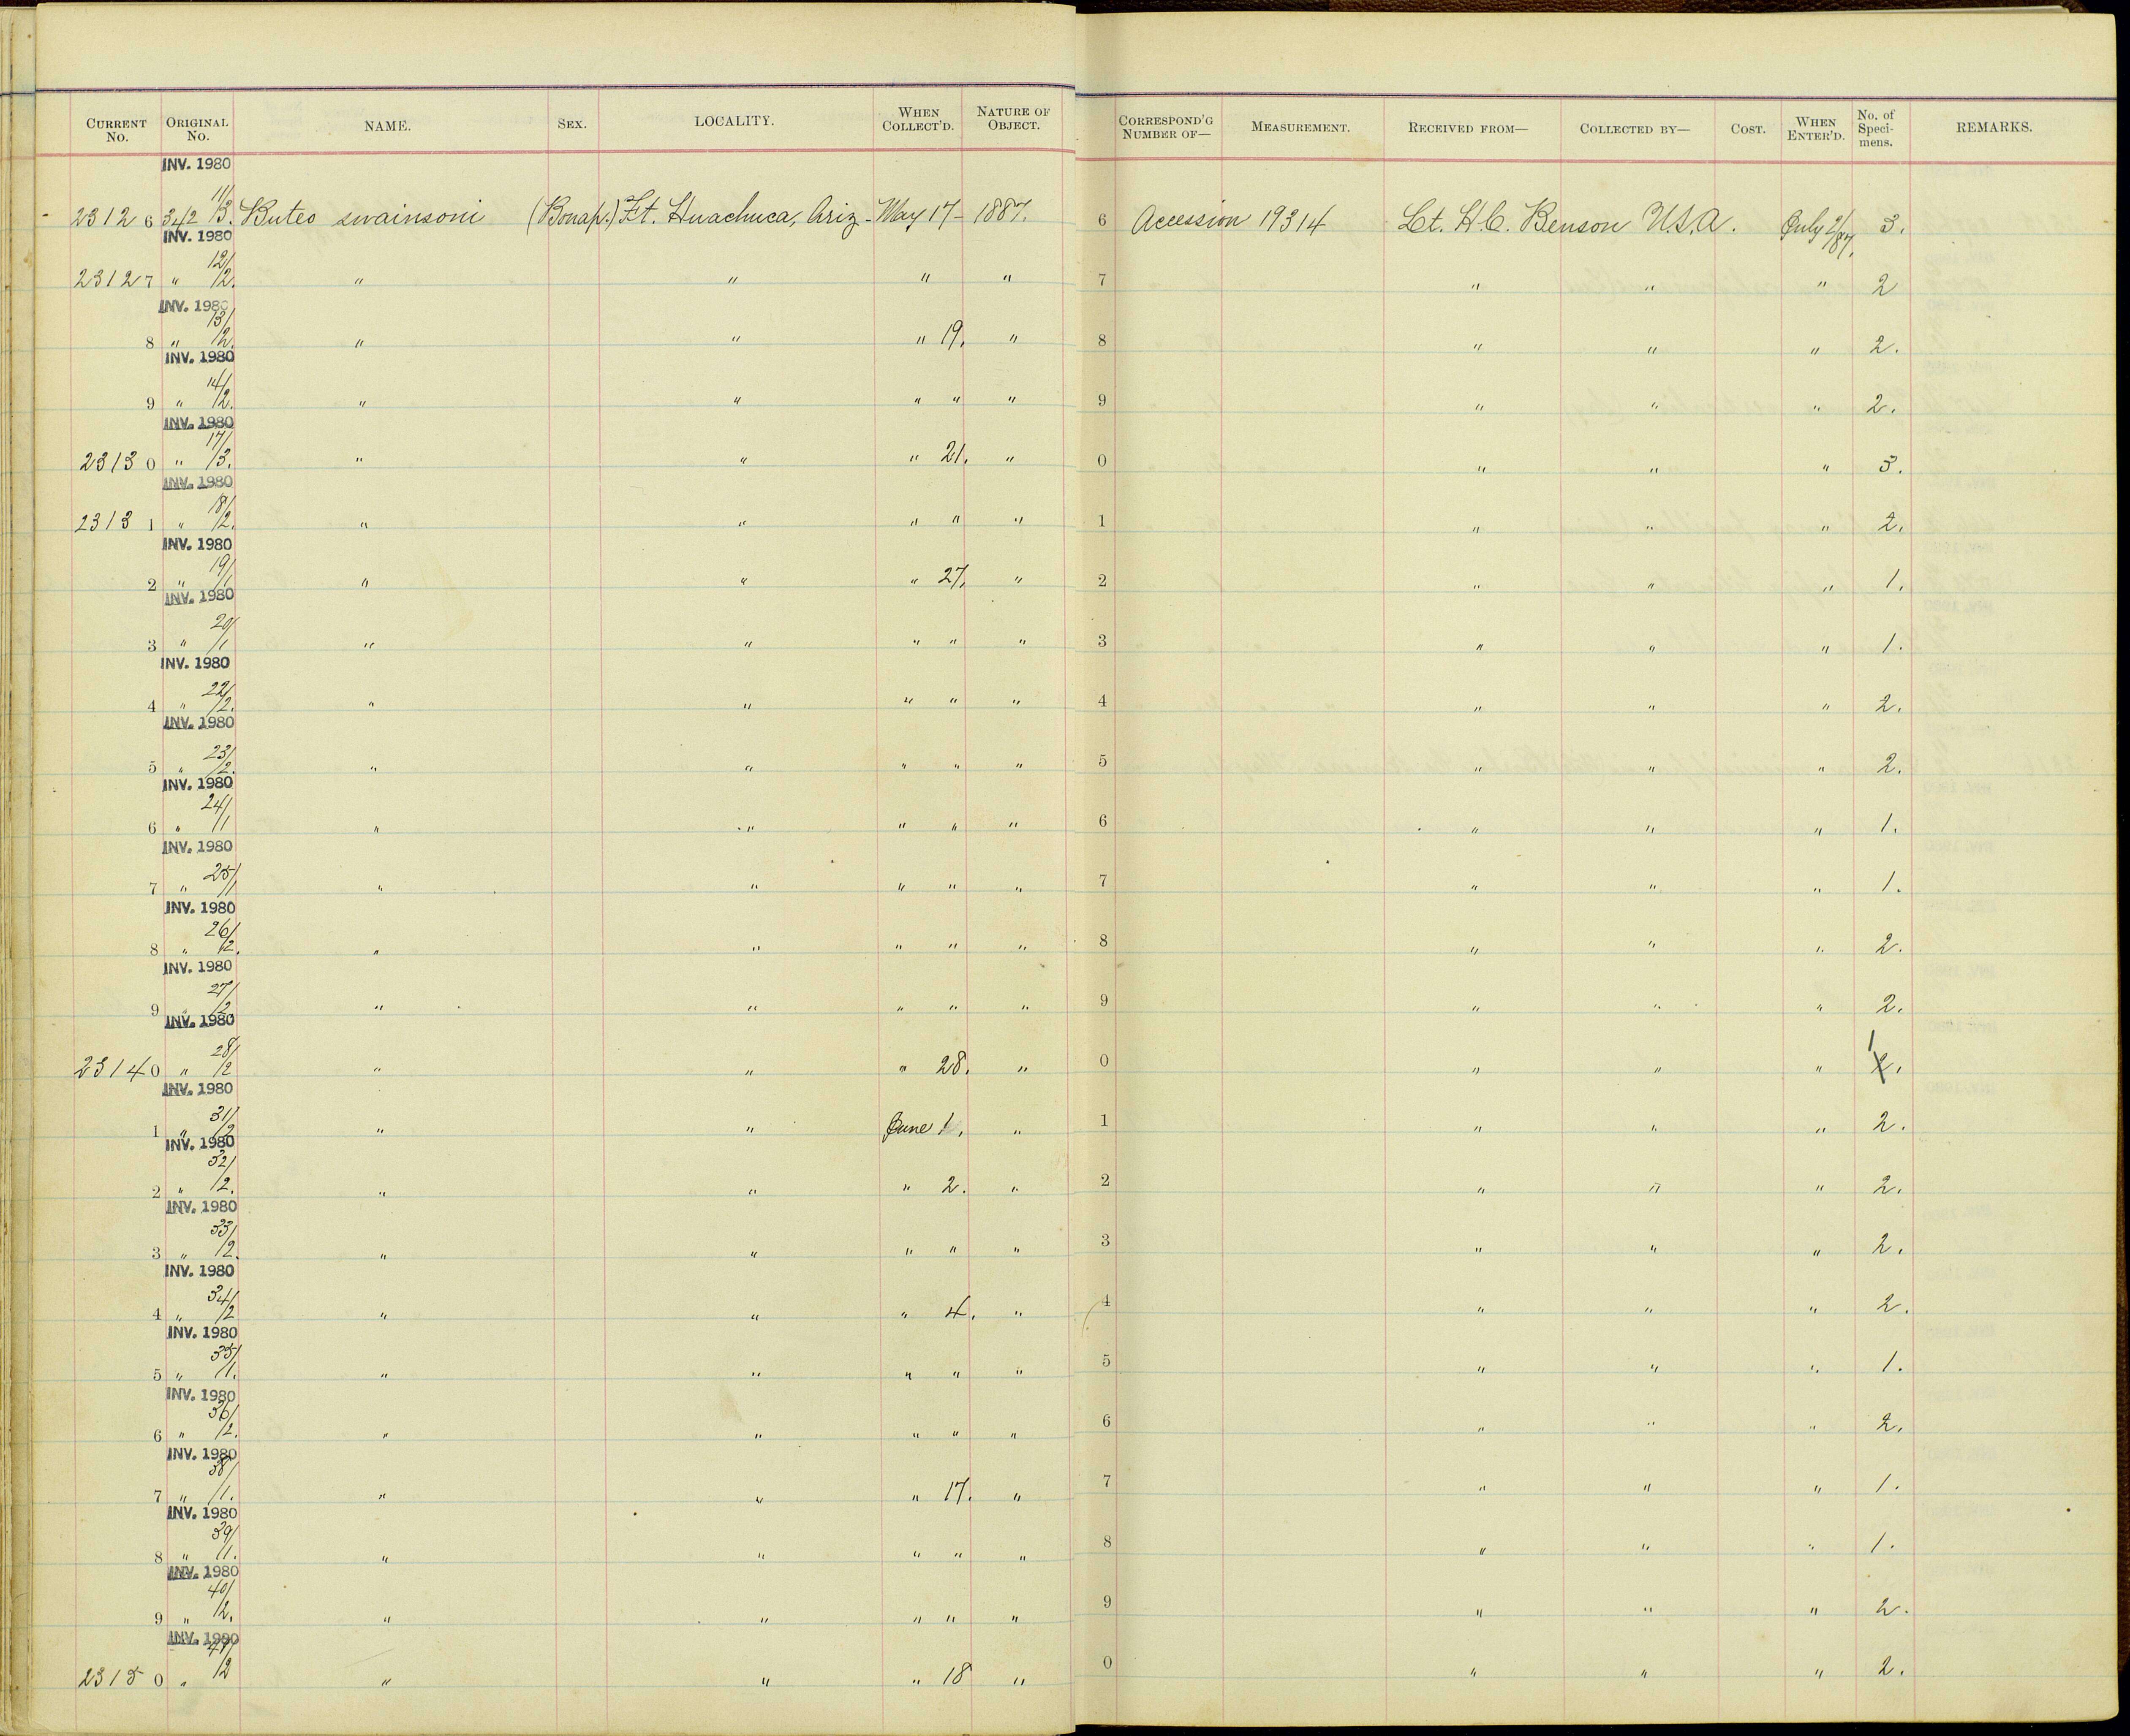 CURRENT No. ORIGINAL No. NAME. SEX. LOCALITY. WHEN COLLECT'D. NATURE OF OBJECT. CORRESPOND'G NUMBER OF— MEASUREMENT. RECEIVED FROM— COLLECTED BY— COST. WHEN ENTER'D. No. of Specimens. REMARKS.
INV. 1980
2312 6 342 11/3. Buteo swainsoni (Bonap.) Ft. Huachuca, Ariz - May 17 - 1887. 6 Accession 19314 Lt. H.C. Benson U.S.A. July 2/87. 3.
INV. 1980
2312 7 " 12/2. " " " " 7 " " " 2
INV. 1980
8 " 13/2. " " " 19. " 8 " " " 2.
INV. 1980
9 " 14/2. " " " " " 9 " " " 2.
INV. 1980
2313 0 " 17/3. " " " 21. " 0 " " " 3.
INV. 1980
2313 1 " 18/2. " " " " " 1 " " " 2.
INV. 1980
2 " 19/1 " " " 27. " 2 " " " 1.
INV. 1980
3 " 20/1 " " " " " 3 " " " 1.
INV. 1980
4 " 22/2. " " " " " 4 " " " 2.
INV. 1980
5 " 23/2. " " " " " 5 " " " 2.
INV. 1980
6 " 24/1 " " " " " 6 " " " 1.
INV. 1980
7 " 25/1 " " " " " 7 " " " 1.
INV. 1980
8 " 26/2. " " " " " 8 " " " 2.
INV. 1980
9 " 27/2. " " " " " 9 " " " 2.
INV. 1980
2314 0 " 28/2 " " " 28. " 0 " " " 1 2.
INV. 1980
1 " 31/2 " " June 1. " 1 " " " 2.
INV. 1980
2 " 32/2. " " " 2. " 2 " " " 2.
INV. 1980
3 " 33/2. " " " " " 3 " " " 2.
INV. 1980
4 " 34/2 " " " 4. " 4 " " " 2.
INV. 1980
5 " 35/1. " " " " " 5 " " " 1.
INV. 1980
6 " 36/2. " " " " " 6 " " " 2.
INV. 1980
7 " 38/1. " " " 17. " 7 " " " 1.
INV. 1980
8 " 39/1. " " " " " 8 " " " 1.
INV. 1980
9 " 40/2. " " " " " 9 " " " 2.
INV. 1980
2315 0 " 41/2 " " " 18 " 0 " " " 2.